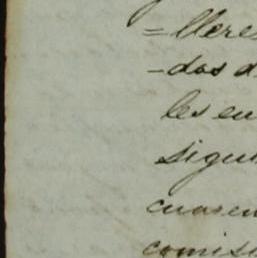 =llere
-dos d
les en
sigui
cuaren
comis